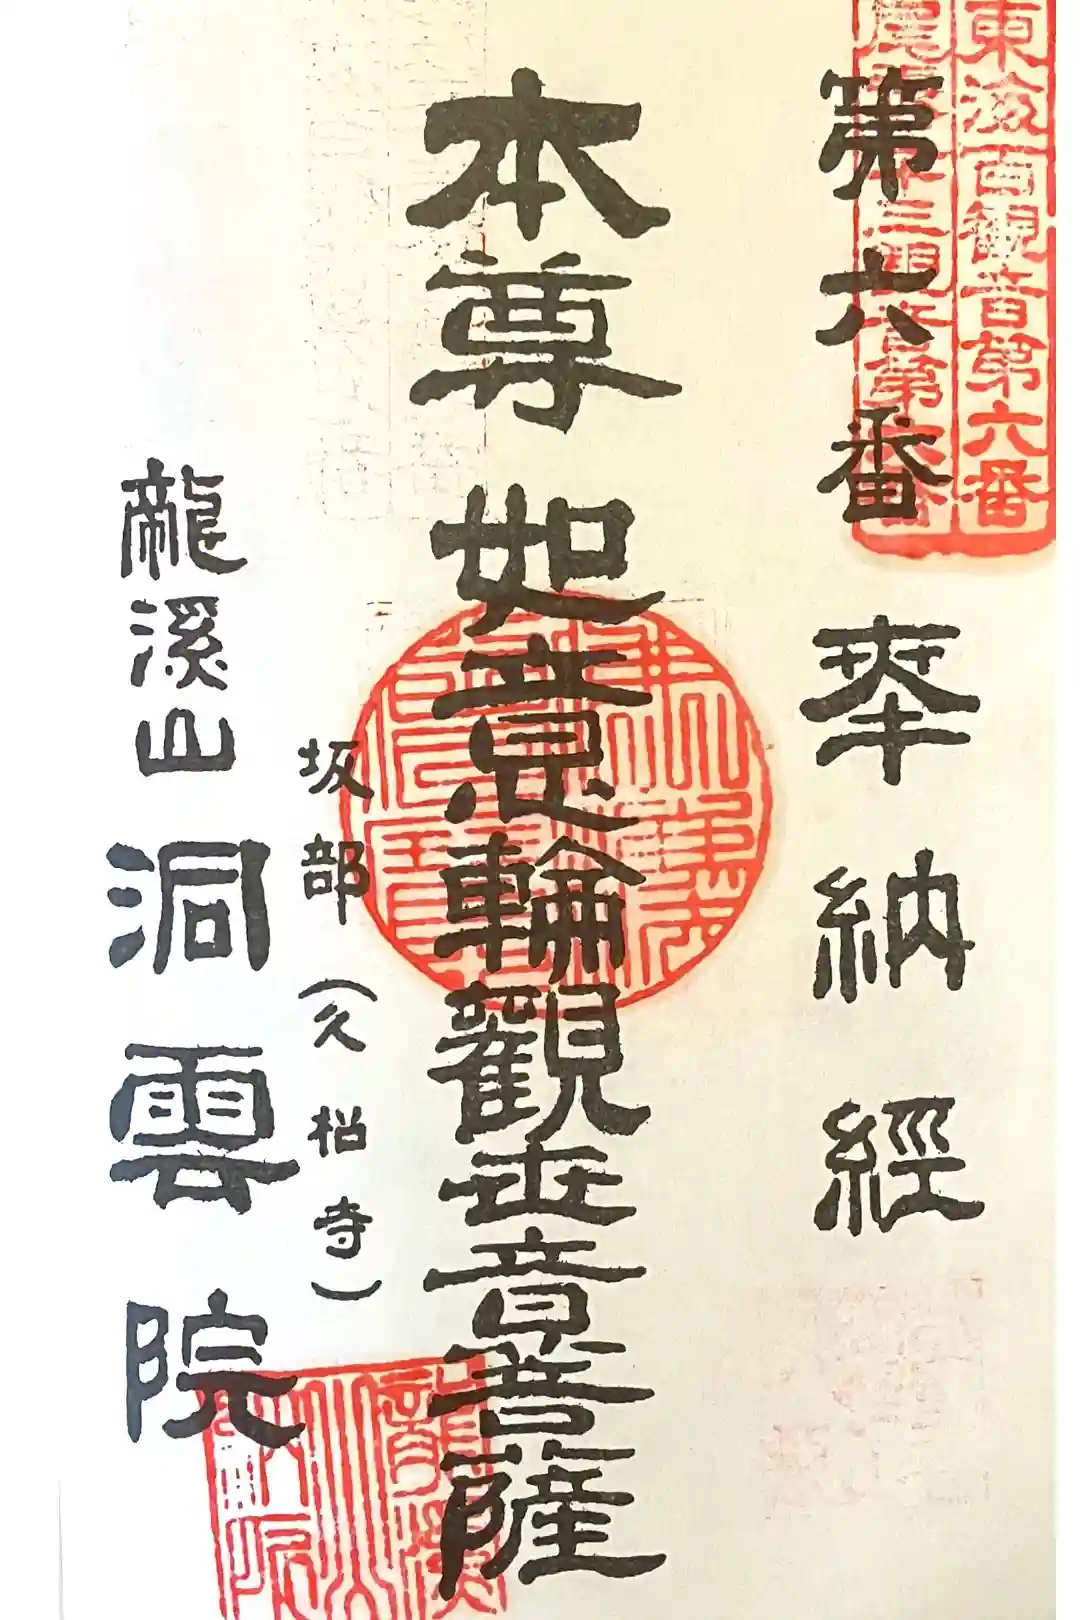 東海百観音第六番
第六番 奉納經
本尊 如意輪觀世音菩薩
坂部(久松寺)
龍溪山 洞雲院